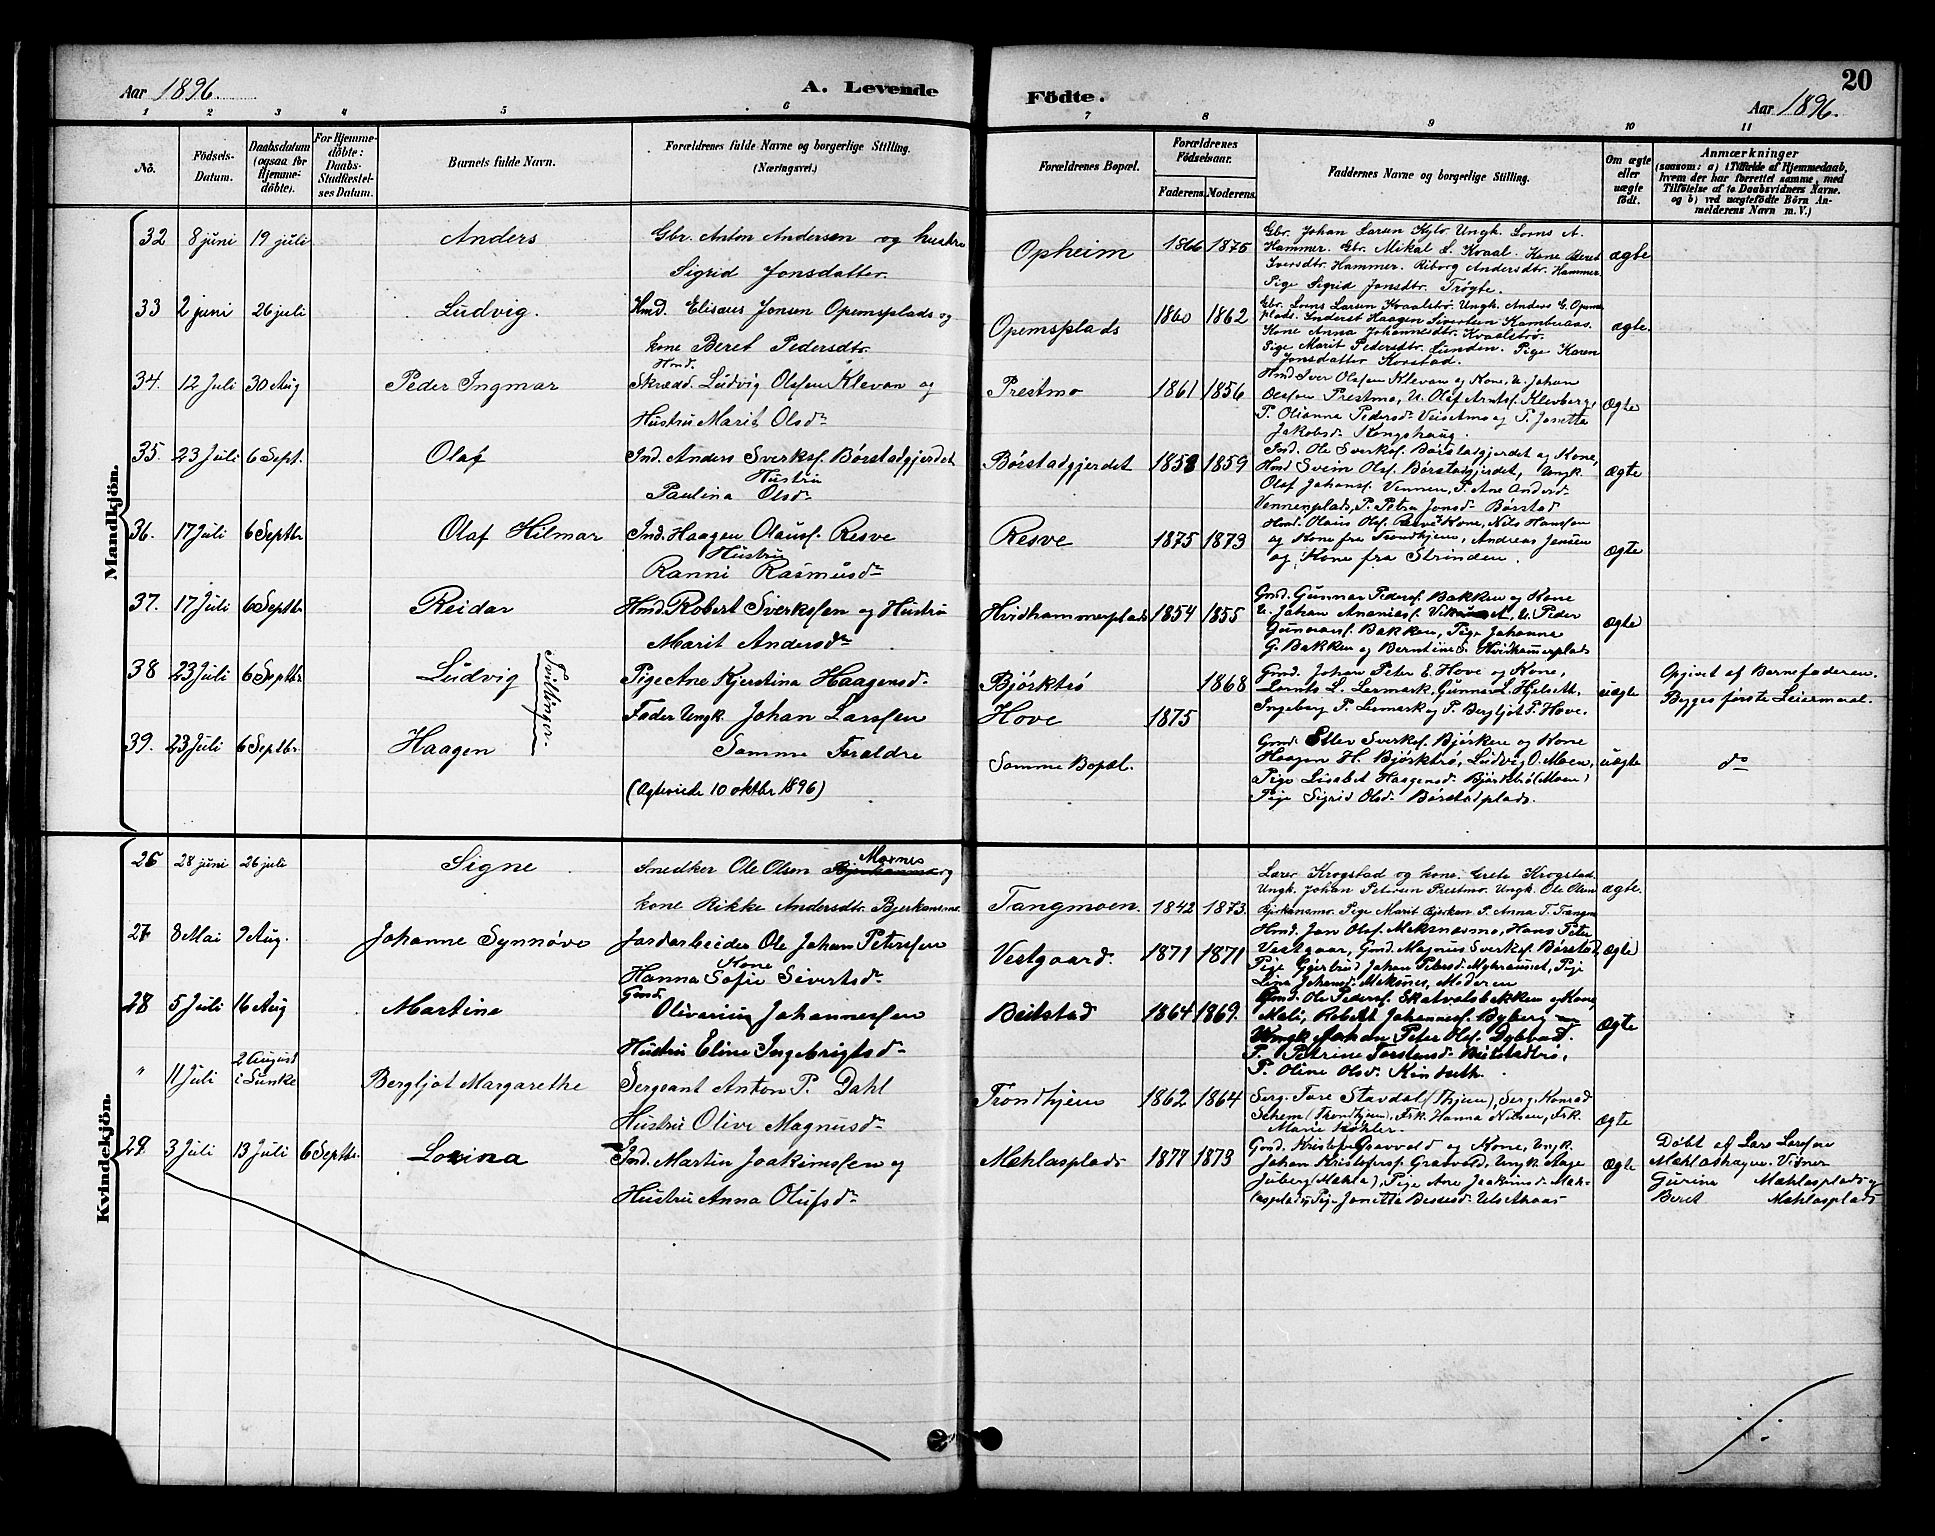 Aar 1896. A. Levende
Födte. Aar 1896.
20
1 2 3 4 5 6 7 8 9 10 11
No.
Födsels-Datum.
Daabsdatum (ogsaa for Hjemmedöbte).
For Hjemmedöbte: Daabs-Stadfæstelses Datum.
Barnets fulde Navn.
Forældrenes fulde Navne og borgerlige Stilling.
(Næringsvei.)
Forældrenes Bopæl.
Forældrenes Födselsaar.
Faderens. Moderens.
Faddernes Navne og borgerlige Stilling.
Om ægte eller uægte födt.
Anmærkninger
(saasom: a) i Tilfælde af Hjemmedaab,
hvem der har forrettet samme, med
Tilföielse af to Daabsvidners Navne.
og b) ved uægtefödte Börn An-
melderens Navn m. V.)
Mandkjön.
32 8 juni 19 juli Anders Gbr. Anton Andersen og hustru
Sigrid Jonsdatter
Opheim 1866 1875
Gbr. Johan Larsen Ungk. Lorns A.
Hammer. Gbr. Mikal L. Kvaal. Kone Beret
Iversdtr. Hammer. Riborg Andersdtr. Hammer
Pige Sigrid Jonsdtr. Trøgte.
ægte
33 2 juni 26 juli Ludvig. Hmd. Eliseus Jonsen Opemsplads og
kone Beret Pedersdtr.
Opemsplads 1860 1862
Gbr. Lorns Larsen Kvaalstrø. Ungk. Anders G. Opems
plads. Inderst Haagen Sivertsen
Kone Anna Johannesdtr. Kvaalstrø.
Pige Marit Pedersdtr. Lunden. Pige Karen
Jonsdatter Korstad.
ægte.
34. 12 Juli 30 Aug Peder Ingmar Hmd.
Skrædd. Ludvig Olsfen Klevan og
Hustru Marit Olsd.
Prestmo 1861 1856
Hmd. Iver Olsfen Klevan og Kone, U. Johan
Olsfen Prestmo, U. Olaf Arntsf. Klevberg,
P. Olianna Pedersd. Veisethmo og P. Jonetta
Jakobsd. Kongshaug.
Ægte
35. 23 Juli 6 Sept. Olaf Ind. Anders Sverksf. Børstadgjerdet
Hustru
Paulina Olsd.
Børstadgjerdet 1858 1859
Ind. Ole Sverksf. Børstadgjerdet og Kone,
Hmd Svein Olsf. Børstadgjerdet, Ungk.
Olaf Johansf. Vennen, P. Ane Andersd.
Vennenplads, P. Petra Jonsd. Børstad
Ægte
36. 17 Juli 6 Septbr. Olaf Hilmar Ind. Haagen Olausf. Resve
Hustru
Ranni Rasmusd.
Resve 1875 1873
Hmd. Olaus Olsf. Resve og Kone, Nils Hansfen
og Kone fra Trondhjem, Andreas Jensen
og Kone fra Strinden.
Ægte
37. 17 Juli 6 Septbr. Reidar Hmd. Robert Sverksfen og Hustru
Marit Andersd.
Hvidhammerplads 1854 1855
Gmd. Gunnar Pedersf. Bakken og Kone
U. Johan Ananiasf. U. Peder
Gunnarsf. Bakken, Pige Johanna
G. Bakken og Berntine S. Hvidhammerplads
Ægte
38 23 Juli 6 Septbr. Ludvig Pige Ane Kjerstina Haagensd.
Fader Ungk. Johan Larsfen
Tvillinger.
Bjørktrø 1868
Hove 1875
Gmd. Johan Peter E. Hove og Kone,
Lornts L. Lermark, Gunner L. Helseth,
Ingeborg P. Lermark og P. Bergljot P. Hove.
uægte
Opgivet af Barnefaderen.
Begges første Leiermaal.
39. 23 Juli 6 Septbr. Haagen Samme Forældre
(Ægteviede 10 oktbr 1896)
Samme Bopæl.
Gmd. Ellev Sverksf. Bjørken og Kone
Haagen H. Bjørktrø, Ludvig O. Moen,
Pige Lisabet Haagensd. Bjørktrø (Moen)
Pige Sigrid Olsd. Børstadplads.
uægte do
Kvindekjön.
26 28 juni 26 juli Signe Snedker Ole Olsen Mærnes og
kone Rikke Andersdtr. Bjerkansmo.
Tangmoen. 1842 1873.
Lærer Krogstad og kone Grete Krogstad.
Ungk. Johan Petersen Prestmo. Ungk. Ole Olsen
Bjerkansmo. Pige Marit Bjerkan P. Anna T. Tangm
ægte.
27 8 Mai 9 Aug. Johanne Synnøve Jordarbeider Ole Johan Petersfen
Kone
Hanna Sofie Sivertsd.
Vestgaard. 1871 1871
Hmd. Jon Olsf. Meksnesmo, Hans Peter
Vestgaar, Gmd. Magnus Sverksf. Børstad,
Pige Gjertrud Johan Petersd. Myhraunet, Pige
Lina Johansd. Meksnes, Moderen
Ægte
28 5 Juli 16 Aug Martina Gmd.
Oliverius Johannesfen
Hustru Eline Ingebrigtsd.
Beitstad 1864 1869.
Gmd. Ole Pedersf. Skatvalsbakken og Kone,
Mali, Robert Johannesf. Byberg
Ungk Johan Peter Olsf. Dybvad,
P. Petrine Torstensd. Beitstadtrø,
P. Oline Olsd. Kindseth.
Ægte
" 11 Juli 2 August i Lunke Bergljot Margarethe Sergeant Anton P. Dahl
Hustru Olive Magnusd.
Trondhjem 1862 1864
Serg. Tore Stavdal (Thjem), Serg. Konrad
Schem (Trondhjem), Frk. Hanna Nilsen, Frk.
Marie Køhler.
Ægte
29 3 Juli 13 Juli 6 Septbr. Lovina Ind. Martin Joakimsfen og
Hustru Anna Olufsd.
Mæhlasplads 1877 1873
Gmd. Kristofer Græsvold og Kone, Ungk.
Johan Kristofersf. Græsvold, Ungk. Aage
Juberg (Mæhla), Pige Ane Joakimsd. Mæh-
lasplads, Pige Jonetta
Ægte
Døbt af Lars Larsfen
Mæhlashagen. Vidner
Gurina Mæhlasplads og
Beret Mæhlasplads